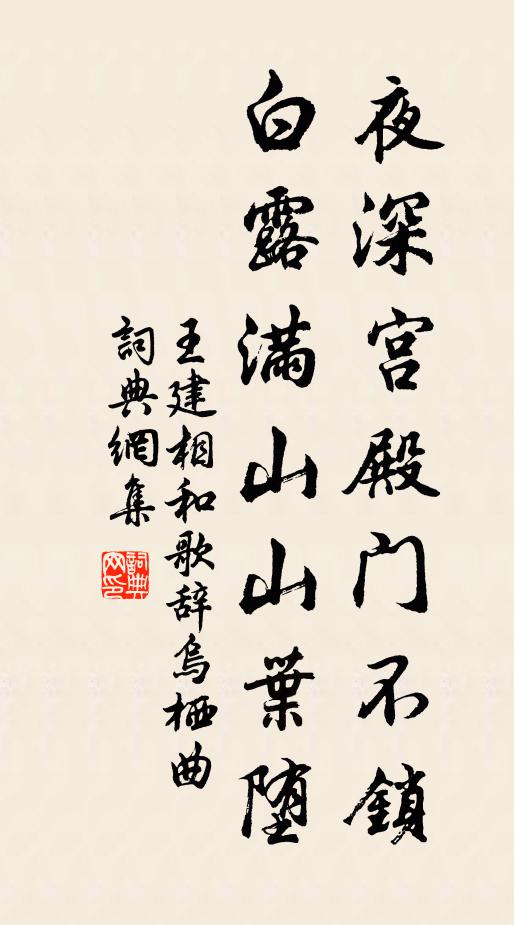 夜深宫殿门不鎖
白露滿山山葉堕
王建相和歌辞烏栖曲
詞典網集
詞典網印